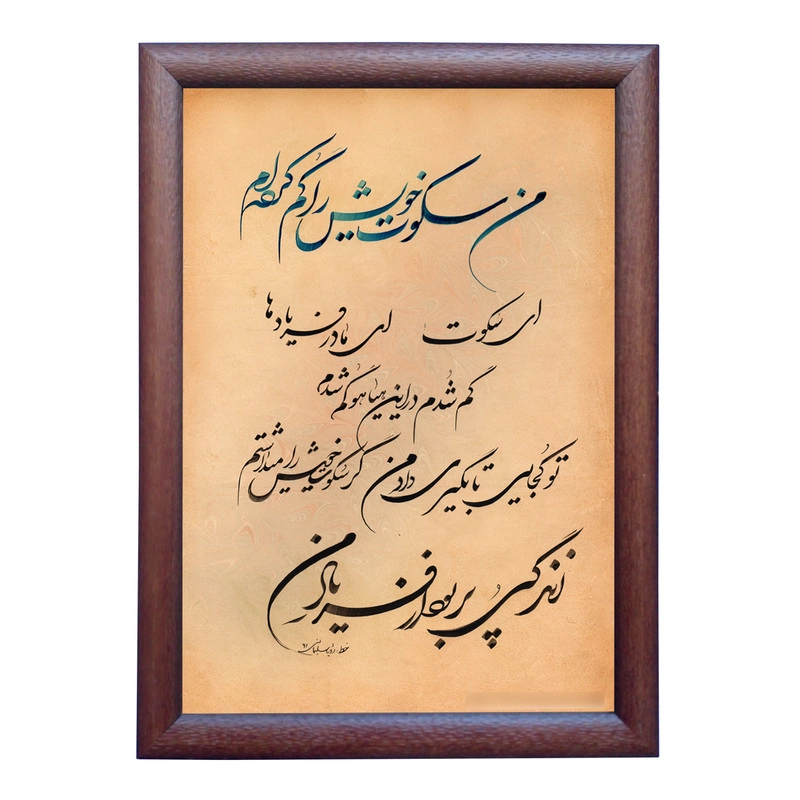 من سکوت خویش را گم کرده‌ام
ای سکوت ای مادر فریادها
گم شدم در این هیاهو گم شدم
تو کجایی تا بگیری داد من گر سکوت خویش را میداشتم
زندگی پر بود از فریاد من
خط: